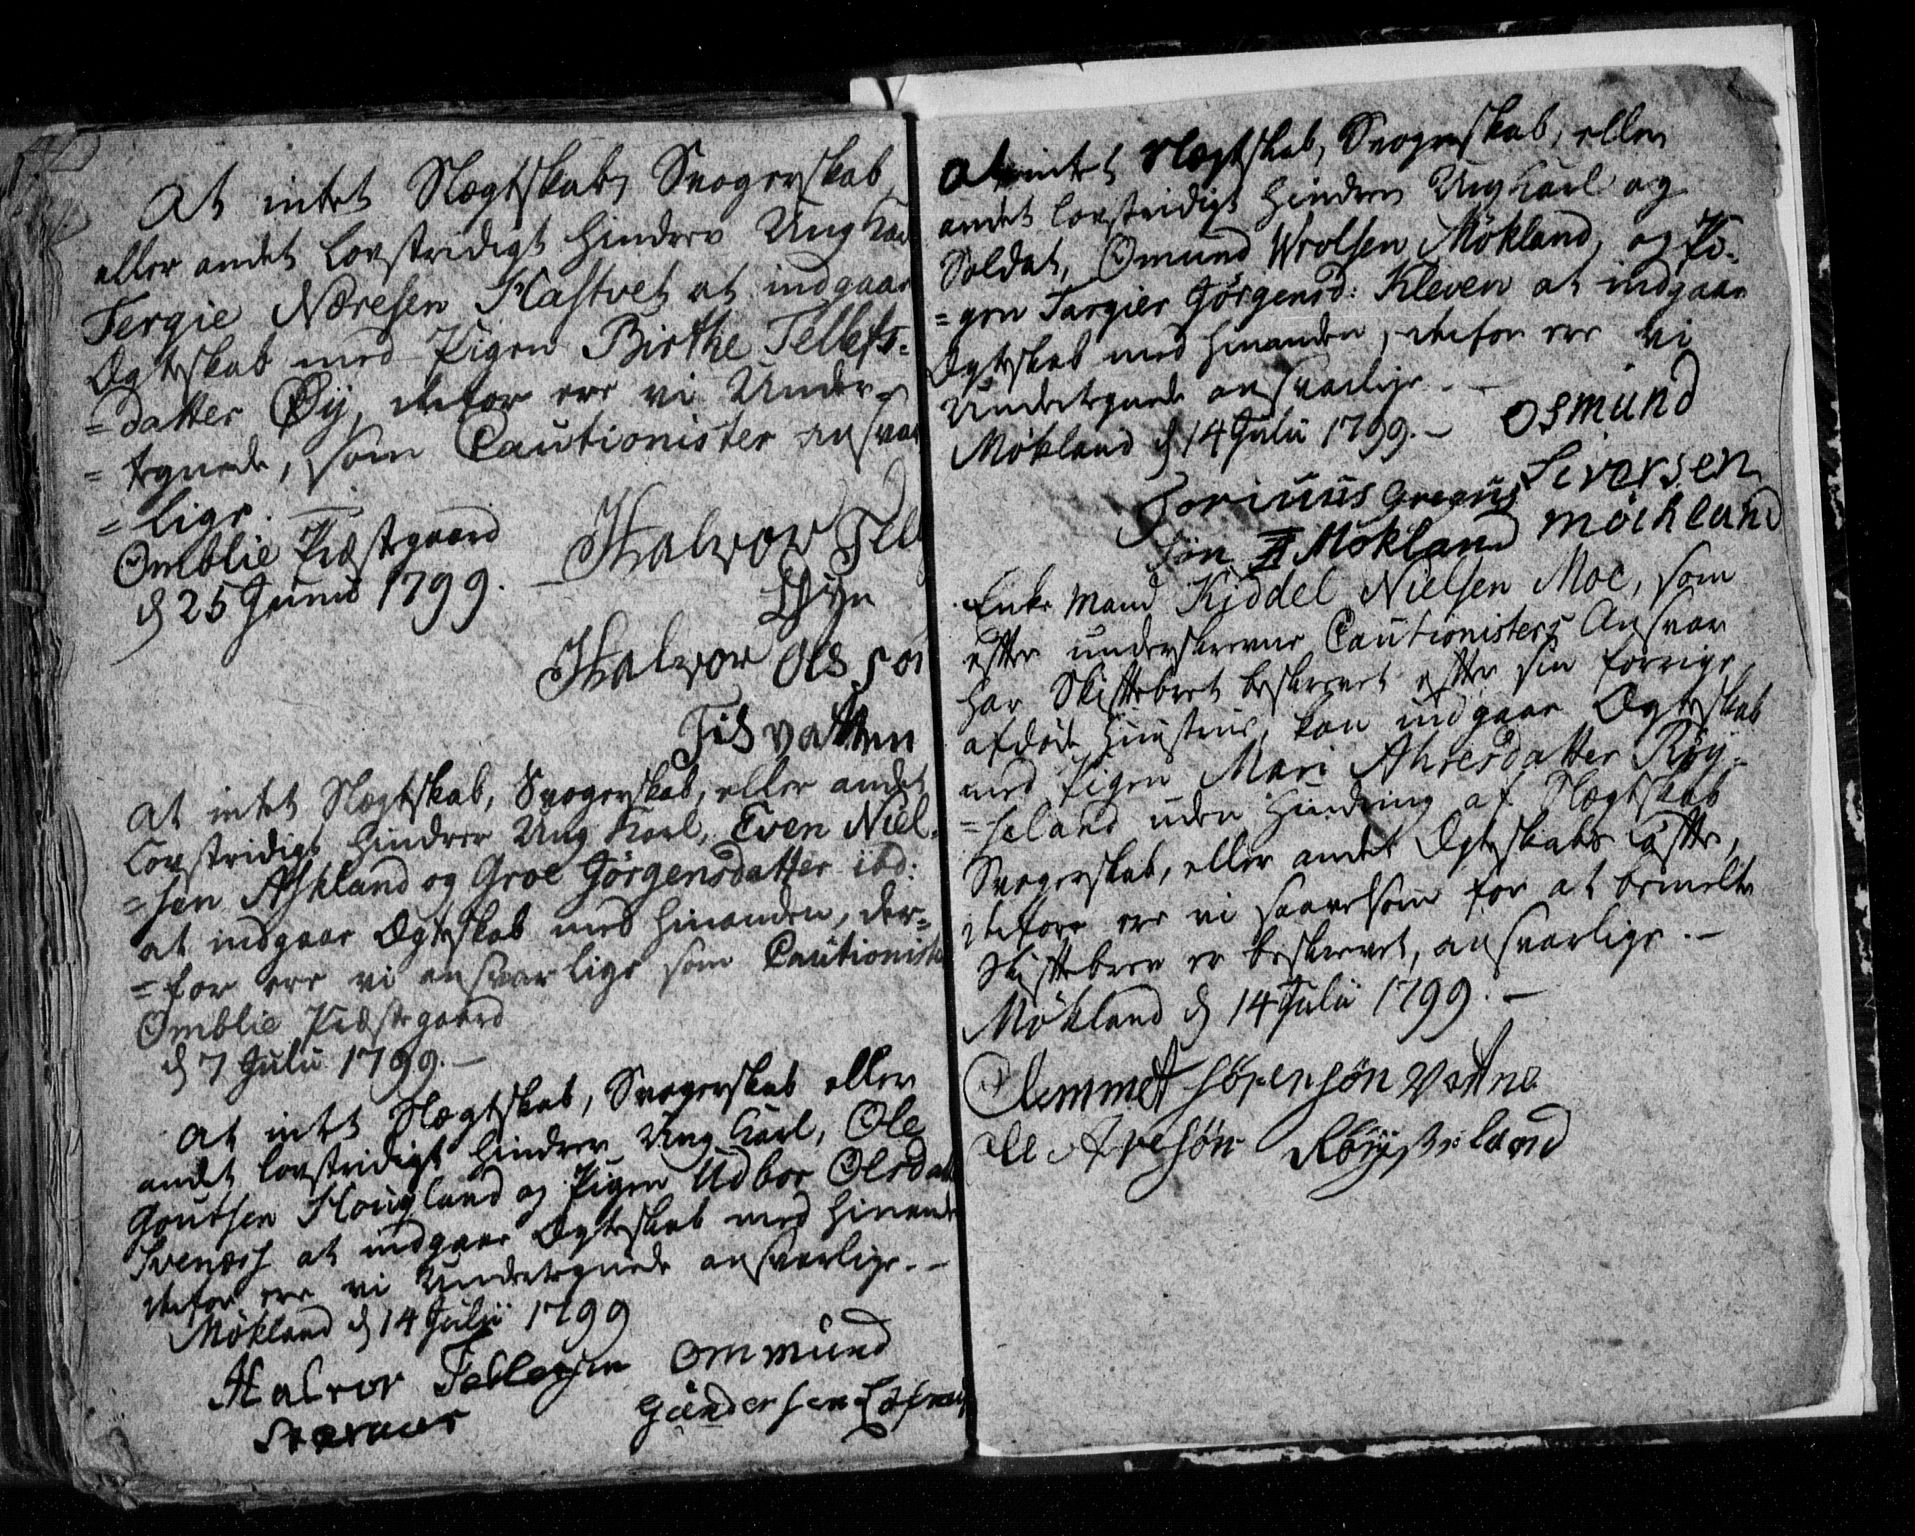 At intet Slægtskab, Svogerskab,
eller andet lovstridigt hindrer Ung Kar
Tergie Næresen Hastvet at indgaae
Ægteskab med Pigen Birthe Tellefs-
=datter Øÿ, derfor ere vi Under-
=tegnede, som Cautionister ansvar
=lige.
Omblie Præstegaard
d 25 Junii 1799.
Halvor Tell
Øÿn
Halvor Ols søn
Tisvatten
At intet Slægtskab, Svogerskab, eller andet
Lovstridigt hindrer Ung Karl, Even Niel-
=sen Askland og Groe Jørgensdatter ibd:
at indgaae Ægteskab med hinanden, der-
=for ere vi ansvarlige som Cautioniste
Omblie Præstegaard
d 7 Julii 1799.
At intet Slægtskab, Svogerskab eller
andet lovstridigt hindrer Ung Karl, Ole
Goutsen Hougland og Pigen Udbor Olsdat
Svenæss at indgaae Ægteskab med hinande
derfor ere vi Undertegnede ansvarlige.
Møkland d 14 Julii 1799
Halvor Tellefsen Ommund
Gundersen
At intet Slægtskab, Svogerskab, eller
andet lovstridigt hindrer Ung Karl og
Soldat, Omund Wrolsen Møkland, og Pi-
=gen Targier Jørgensd: Kleven at indgaae
Ægteskab med hinanden, derfor ere vi
Undertegnede ansvarlige.
Møkland d 14 Julii 1799. Osmund
Siversen
Søn Møkland Møckland
Enke Mand Kiddel Nielsen Moe, som
efter underskrevne Cautionisters Ansvar
har Skiftebret beskrevet efter sin forrige
afdøde Hustrue, kan indgaae Ægteskab
med Pigen Mari Ahresdatter Røÿ-
=seland uden Hindring af Slægtskab
Svogerskab, eller andet Ægteskabs Løfte,
derfore ere vi saavelsom for at bemelte
Skiftebrev er beskrevet, ansvarlige.
Møkland d 14 Julii 1799.
Clemmet Sørensøn Vatne
Ole Aresøn Røÿseland